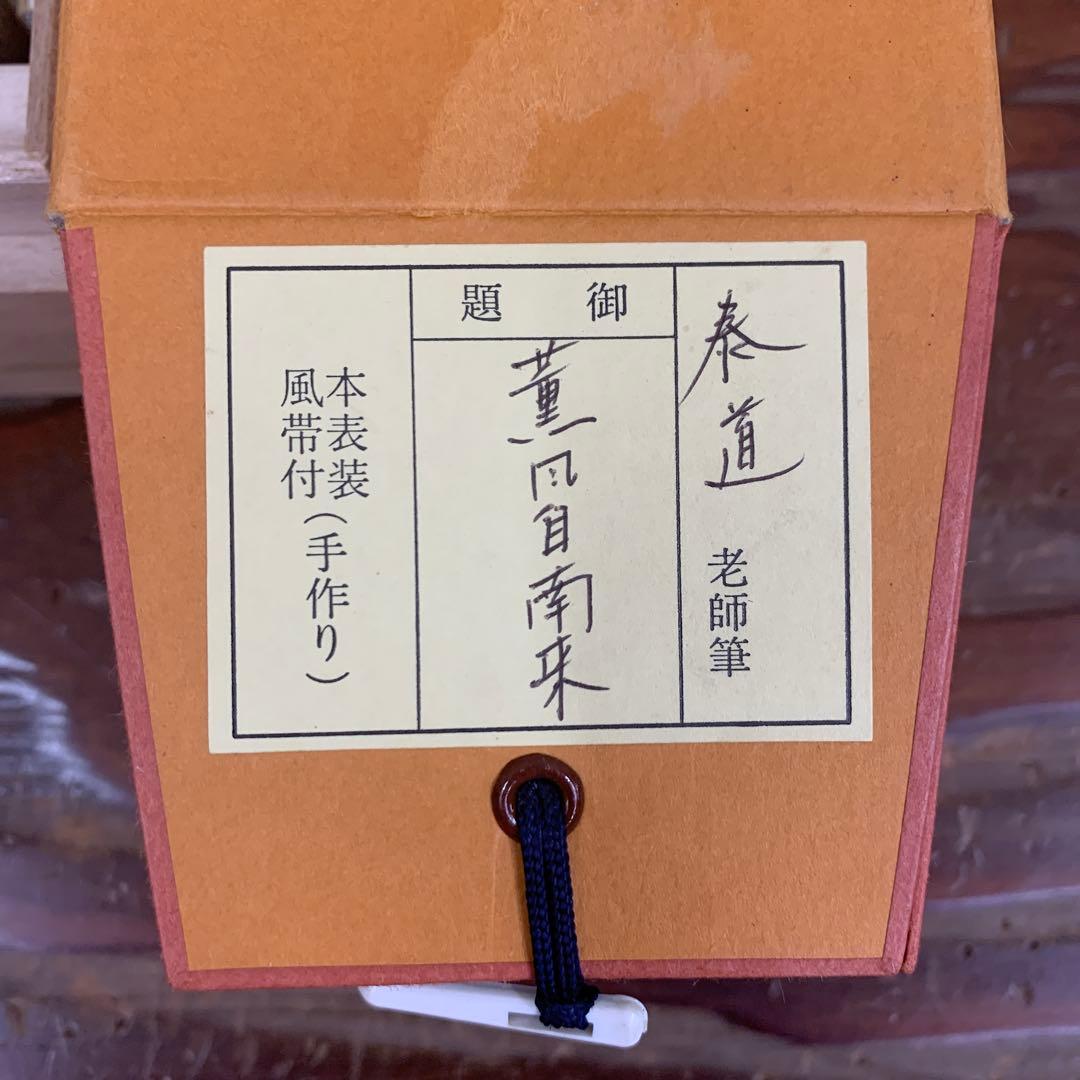 泰道 老師筆
御題
薫風自南来
本表装
風帯付
(手作り)